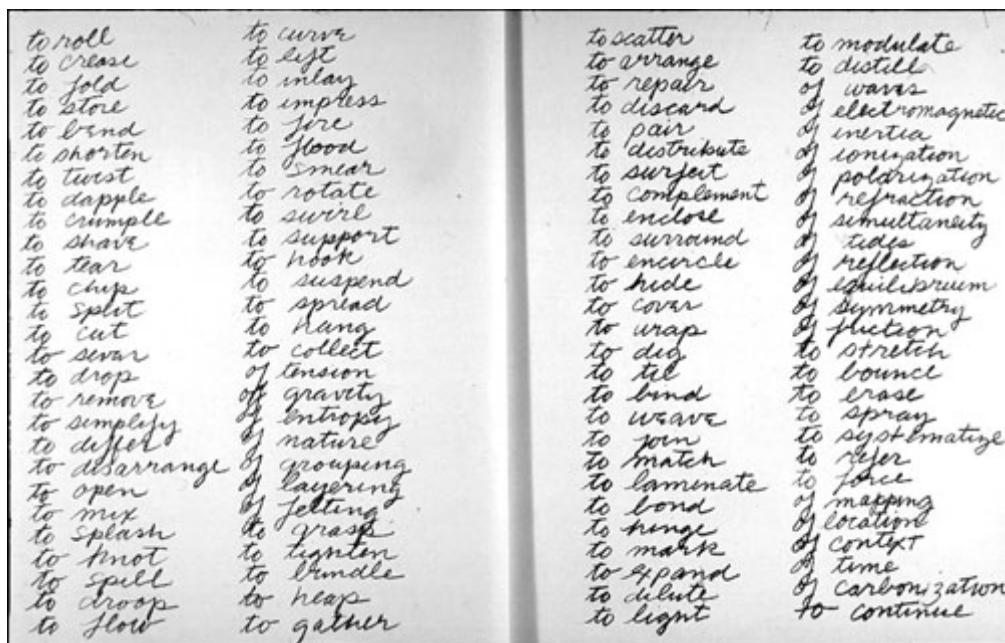 to roll
to crease
to fold
to store
to bend
to shorten
to twist
to dapple
to crumple
to shave
to tear
to chip
to split
to cut
to sever
to drop
to remove
to simplify
to differ
to disarrange
to open
to mix
to splash
to knot
to spill
to droop
to flow
to curve
to lift
to inlay
to impress
to fire
to flood
to smear
to rotate
to swirl
to support
to hook
to suspend
to spread
to hang
to collect
of tension
of gravity
of entropy
of nature
of grouping
of layering
of felting
to grasp
to tighten
to bundle
to heap
to gather
to scatter
to arrange
to repair
to discard
to pair
to distribute
to surfeit
to complement
to enclose
to surround
to encircle
to hide
to cover
to wrap
to dig
to tie
to bind
to weave
to join
to match
to laminate
to bond
to hinge
to mark
to expand
to dilute
to light
to modulate
to distill
of waves
of electromagnetic
of inertia
of ionization
of polarization
of refraction
of simultaneity
of tides
of reflection
of equilibrium
of symmetry
of friction
to stretch
to bounce
to erase
to spray
to systematize
to refer
to force
of mapping
of location
of context
of time
of carbonization
to continue